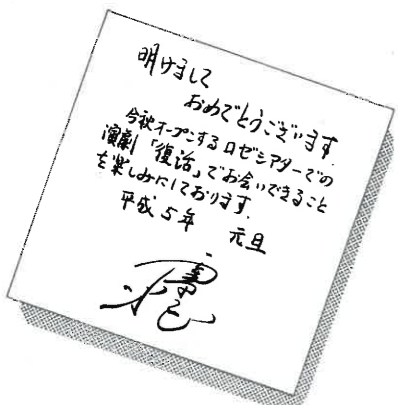 明けまして
おめでとうございます.
今秋オープンするロゼシアターでの
演劇「復活」でお会いできること
を楽しみにしております.
平成5年 元旦